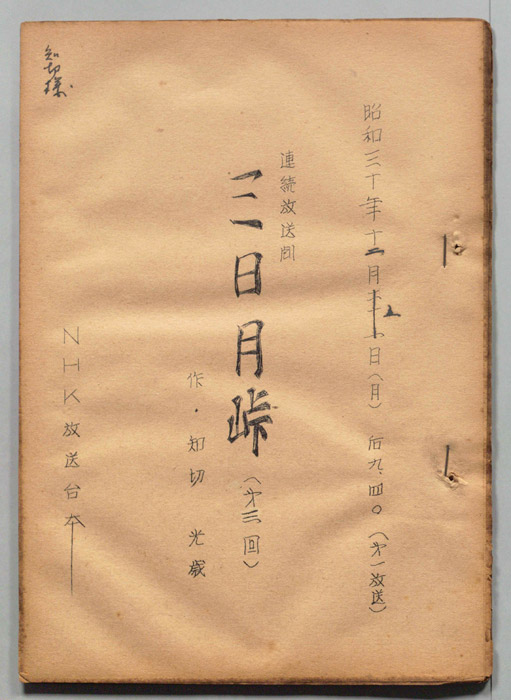 昭和三十年十二月五日(月) 后九.四〇(第一放送)
連続放送劇
三日月峠(第三回)
作・知切光歳
NHK放送台本
知切様